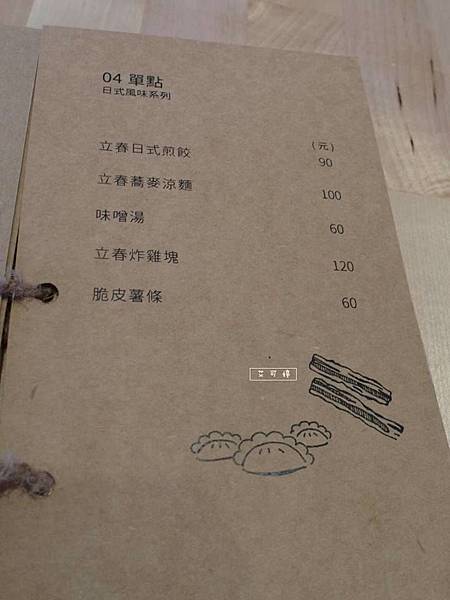 04 單點
日式風味系列
(元)
立春日式煎餃 90
立春蕎麥涼麵 100
味噌湯 60
立春炸雞塊 120
脆皮薯條 60